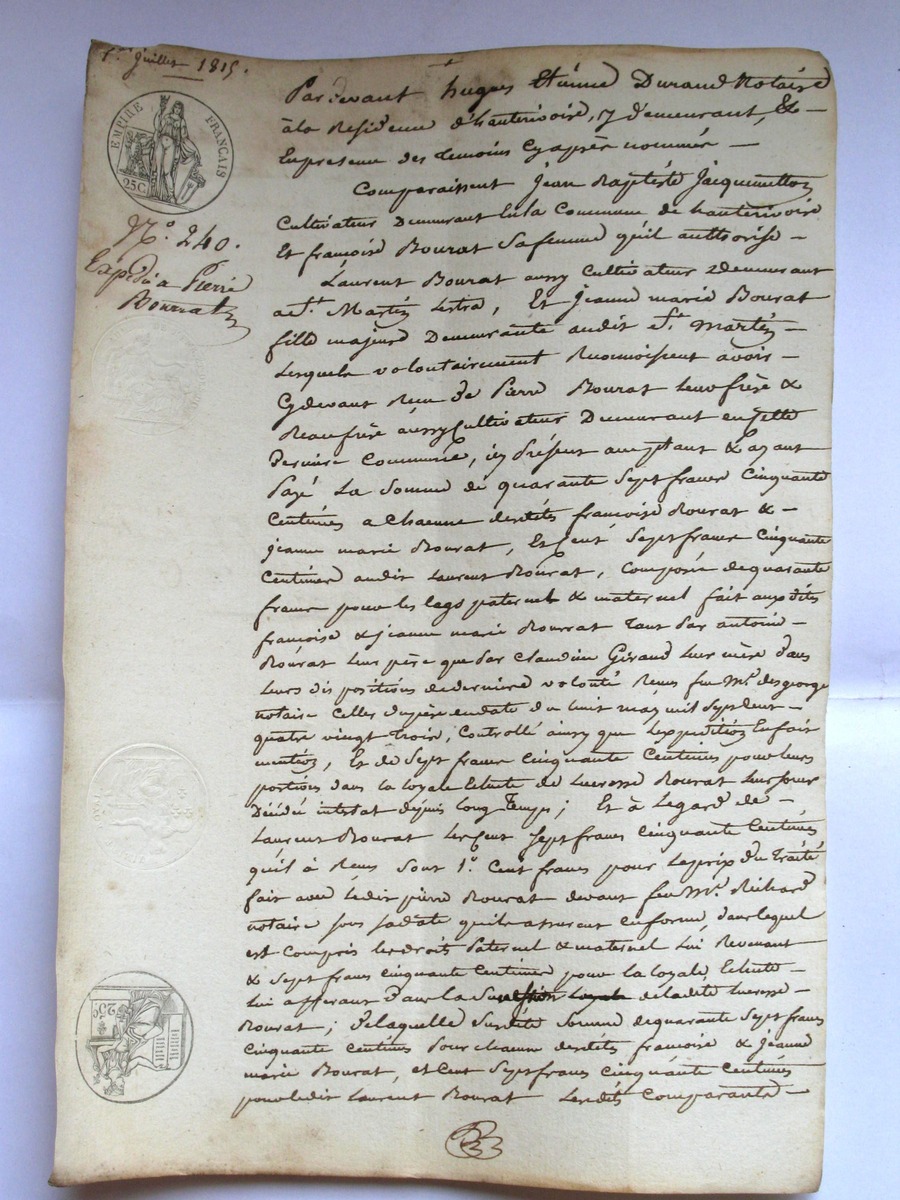 1er Juillet 1815.
EMPIRE FRANÇAIS
25C.
No. 240.
Expédié a Pierre
Bourrat
Pardevant hugues Etienne Durand Notaire
àla Residence d'hauterivoire, y demeurant, &
En presence des temoins Cy après nommés
Comparaissent Jean Baptiste Jacquemetton
Cultivateur Demeurant En la Commune de hauterivoire
Et françoise Bourat Sa femme qu'il authorise
Laurent Bourat aussy Cultivateur Demeurant
a St. Martin Lestra, Et Jeanne marie Bourat
fille majeure Demeurante audit St. Martin
Lesquels volontairement Reconnoissent avoir
Cydevant Reçu de Pierre Bourat leur frère &
Beaufrère aussy Cultivateur Demeurant en Cette
derniere Commune, icy présent acceptant & ayant
Payé La Somme de quarante Sept francs Cinquante
Centimes a Chacune desdites françoise Bourat &
jeanne marie Bourat, Et Cent Sept francs Cinquante
Centimes audit Laurent Bourat, Composée de quarante
francs pour les legs paternel & maternel fait auxdites
françoise & jeanne marie Bourrat Tant Par antoine
Bourat leur père que Par Claudine Giraud leur mère dans
leurs dispositions de derniere volonté Reçues feu Mr. desgeorge
notaire Celles du père en date du huit may mil Sept Cent
quatre vingt trois, Controllé ainsy que L'expedition En fait
mention, Et de Sept francs Cinquante Centimes pour leurs
portions dans la loyale Echute de Lucresse Bourat leur sœur
Décédée intestat depuis long Temps; Et à Legard de
Laurent Bourat Les Cent Sept francs Cinquante Centimes
qu'il à Reçus Sont 1o. Cent francs pour Le prix du Traité
fait avec Ledit pierre Bourat devant feu Mr. Richard
notaire sous sa date qu'ils assurent en forme, dans lequel
est Compris les droits Paternel & maternel Lui Revenant
& Sept francs Cinquante Centimes pour la loyale Echute
Lui afferant Dans la Succession loyale de ladite Lucresse
Bourat; De laquelle Susdite Somme de quarante Sept francs
Cinquante Centimes Pour chacune desdites françoise & Jeanne
marie Bourat, et Cent Sept francs Cinquante Centimes
pour ledit Laurent Bourat Lesdits Comparants
25C